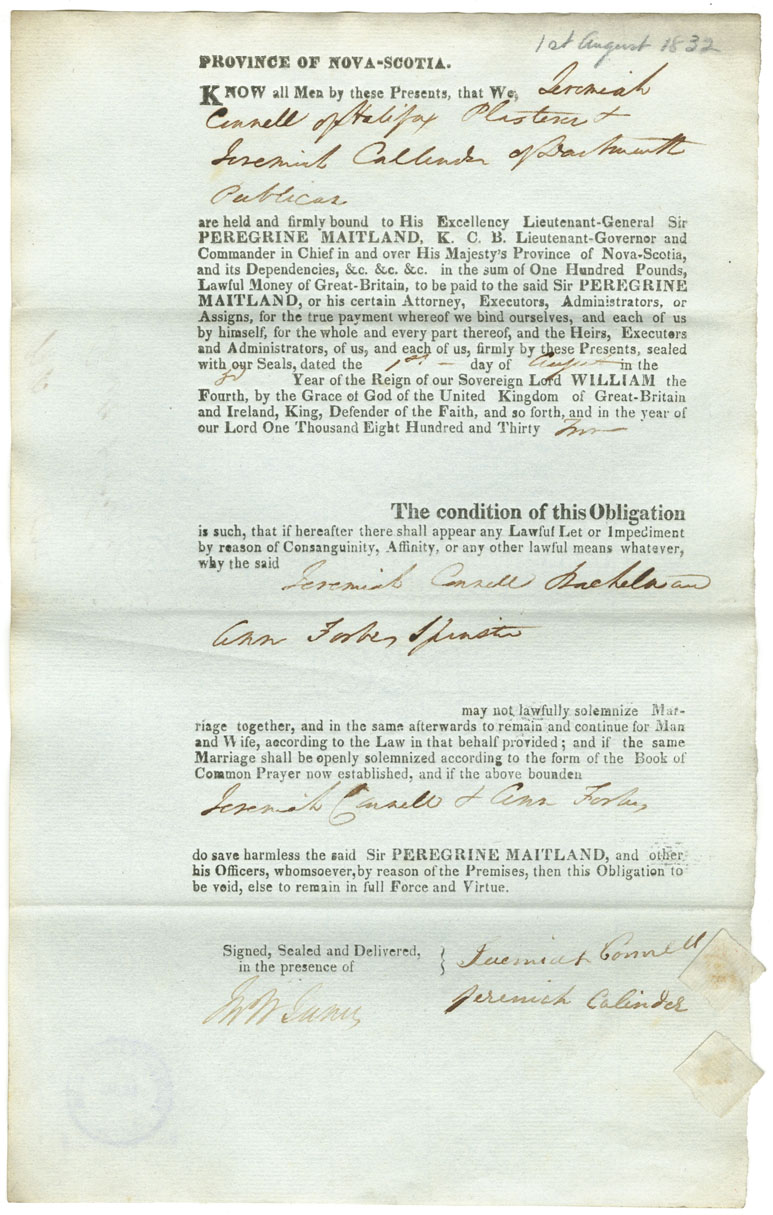 1st August 1832
PROVINCE OF NOVA-SCOTIA.
KNOW all Men by these Presents, that We, Jeremiah
Connell of Halifax Plasterer &
Jeremiah Callender of Dartmouth
Publican
are held and firmly bound to His Excellency Lieutenant-General Sir
PEREGRINE MAITLAND, K. C. B. Lieutenant-Governor and
Commander in Chief in and over His Majesty's Province of Nova-Scotia,
and its Dependencies, &c. &c. &c. in the sum of One Hundred Pounds,
Lawful Money of Great-Britain, to be paid to the said Sir PEREGRINE
MAITLAND, or his certain Attorney, Executors, Administrators, or
Assigns, for the true payment whereof we bind ourselves, and each of us
by himself, for the whole and every part thereof, and the Heirs, Executors
and Administrators, of us, and each of us, firmly by these Presents, sealed
with our Seals, dated the 1st day of August in the
3d Year of the Reign of our Sovereign Lord WILLIAM the
Fourth, by the Grace of God of the United Kingdom of Great-Britain
and Ireland, King, Defender of the Faith, and so forth, and in the year of
our Lord One Thousand Eight Hundred and Thirty Two
The condition of this Obligation
is such, that if hereafter there shall appear any Lawful Let or Impediment
by reason of Consanguinity, Affinity, or any other lawful means whatever,
why the said
Jeremiah Connell Bachelor and
Ann Forbes Spinster
may not lawfully solemnize Mar-
riage together, and in the same afterwards to remain and continue for Man
and Wife, according to the Law in that behalf provided; and if the same
Marriage shall be openly solemnized according to the form of the Book of
Common Prayer now established, and if the above bounden
Jeremiah Connell & Ann Forbes
do save harmless the said Sir PEREGRINE MAITLAND, and other
his Officers, whomsoever, by reason of the Premises, then this Obligation to
be void, else to remain in full Force and Virtue.
Signed, Sealed and Delivered,
in the presence of
Jeremiah Connell
Jeremiah Calinder